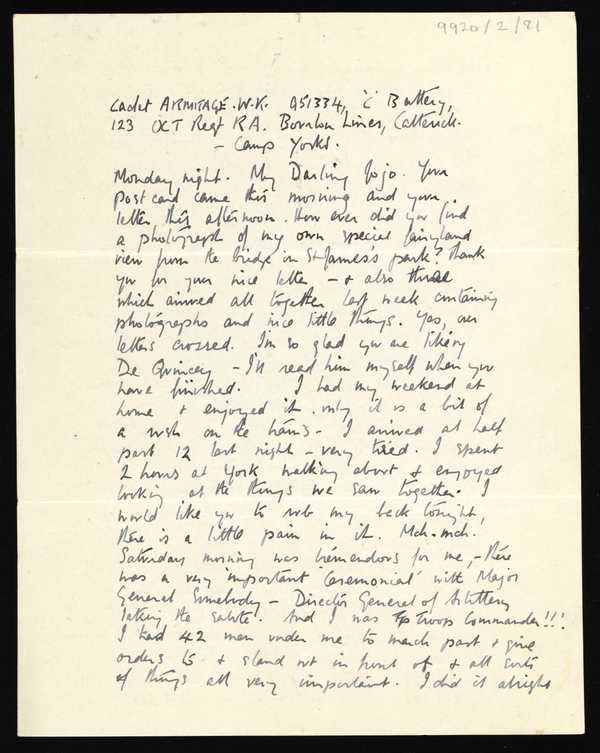 9920/2/81
Cadet ARMITAGE. W.K. 951334, 'C' Battery,
123 OCT Regt RA. Bourlon Lines, Catterick.
– Camp Yorks.
Monday night. My Darling Jojo. Your
post card came this morning and your
letter this afternoon. How ever did you find
a photograph of my own special fairyland
view from the bridge in St James's park? Thank
you for your nice letter – & also three
which arrived all together last week containing
photographs and nice little things. Yes, our
letters crossed. I'm so glad you are liking
De Quincey – I'll read him myself when you
have finished. I had my weekend at
home & enjoyed it. only it is a bit of
a rush on the trains – I arrived at half
past 12 last night – very tired. I spent
2 hours at York walking about & enjoyed
looking at the things we saw together. I
would like you to rub my back tonight,
there is a little pain in it. Mch-mch.
Saturday morning was tremendous for me, – there
was a very important 'Ceremonial' with Major
General Somebody – Director General of Artillery
taking the salute. And I was Troop Commander!!!
I had 42 men under me to march past & give
orders to & stand out in front of & all sorts
of things all very important. I did it alright